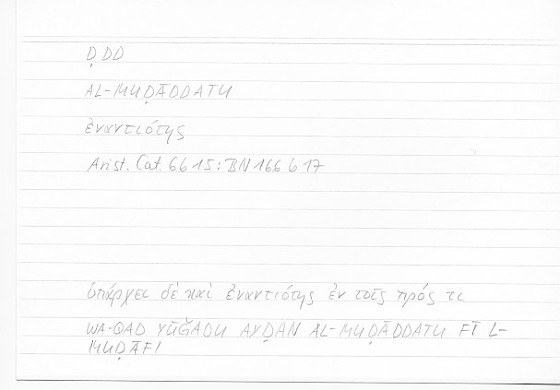 ḌDD
AL-MUḌĀDDATU
ἐναντιότης
Arist. Cat. 6b15: BN 166b17
ὑπάρχει δὲ καὶ ἐναντιότης ἐν τοῖς πρός τι
WA-QAD YŪĞADU AYḌAN AL-MUḌĀDDATU FĪ L-
MUḌĀFI